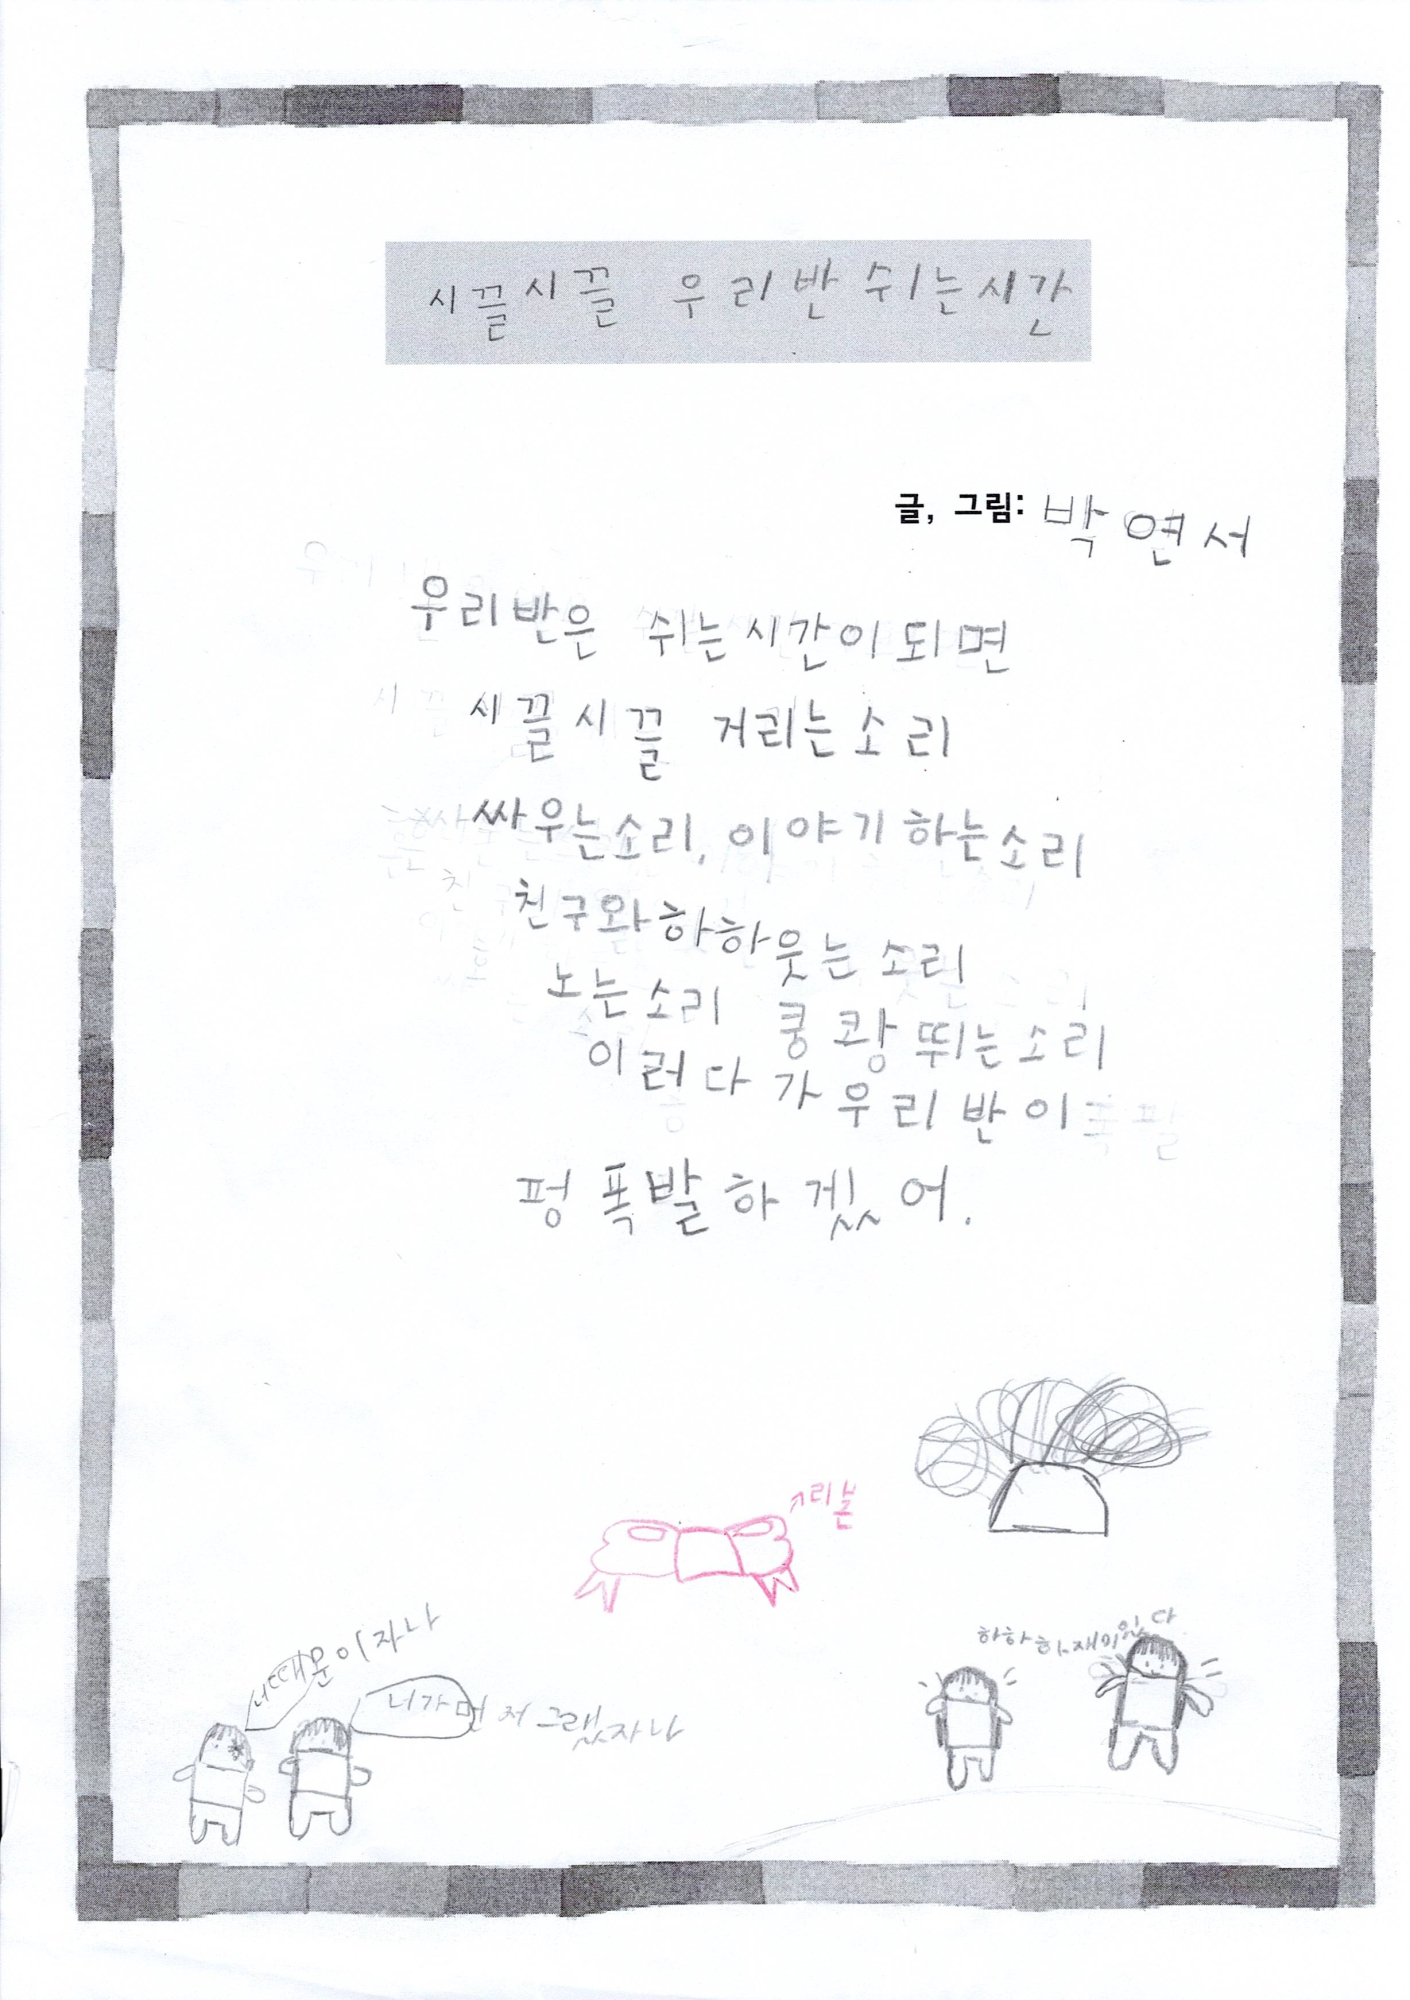 시끌시끌 우리반 쉬는시간
글, 그림: 박연서
우리반은 쉬는시간이되면
시끌시끌 거리는소리
싸우는소리, 이야기하는소리
친구와하하웃는 소리
노는소리 쿵쾅뛰는소리
이러다가우리반이
펑폭발하겠어.
리본
너때문이자나
너가먼저그랬자나
하하하재미있다